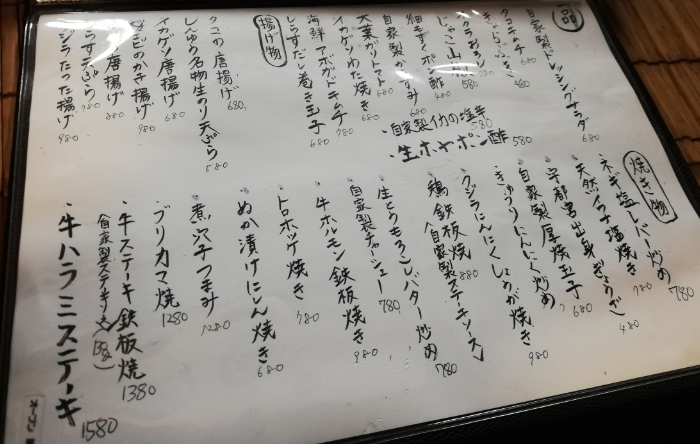 一品
自家製ドレッシングサラダ 680
タコキムチ 680
480
580
じゃこ山 580
細もずくポン酢 480
自家製がり 680
大葉ガリトマト 680
イカゲソわた焼き 780
海鮮アボカドキムチ 680
しらすだし巻き玉子 680
・自家製イカの塩辛 580
・生ホヤポン酢 580
揚げ物
タコの唐揚げ 680
しんゆり名物生のり天ぷら 580
イカゲソ唐揚げ 680
エビのかき揚げ 980
唐揚げ 880
らす天ぷら 780
ジラたった揚げ 980
焼き物
ネギ塩レバー炒め 780
天然イワナ塩焼き 780
宇都宮出身ぎょうざ 480
自家製厚焼玉子 680
きゅうりにんにく炒め
クジラにんにくしょうが焼き 980
鶏鉄板焼 880
(自家製ステーキソース)
生とうもろこしバター炒め 780
自家製チャーシュー 780
牛ホルモン鉄板焼き 980
トロホッケ焼き 780
ぬか漬けにしん焼き 680
煮穴子つまみ 1280
ブリカマ焼 1280
・牛ステーキ鉄板焼 1380
(自家製ステーキソース)
・牛ハラミステーキ 1580